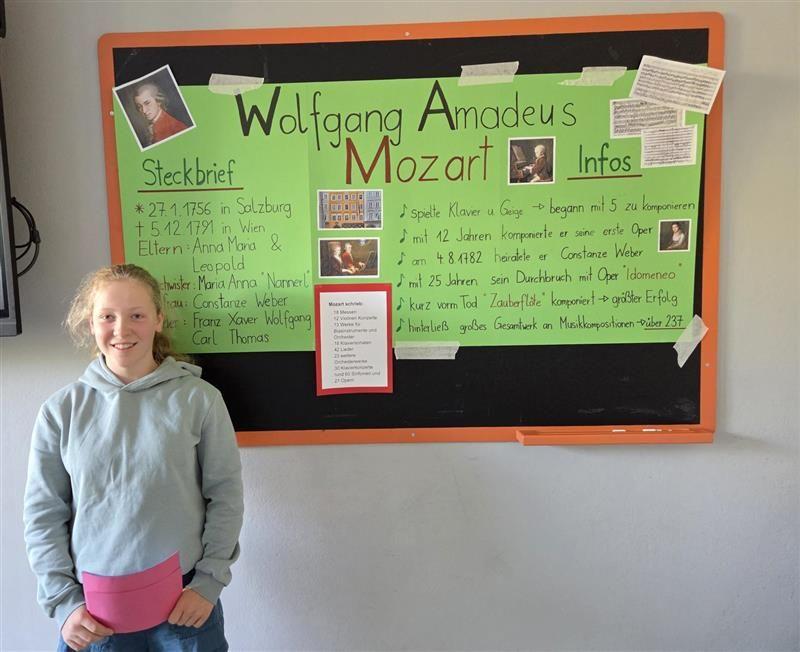 Wolfgang Amadeus
Mozart
Steckbrief
* 27.1.1756 in Salzburg
† 5.12.1791 in Wien
Eltern: Anna Maria &
Leopold
chwister: Maria Anna "Nannerl"
frau: Constanze Weber
der: Franz Xaver Wolfgang
Carl Thomas
Mozart schrieb:
18 Messen
12 Violinen Konzerte
13 Werke für
Blasinstrumente und
Orchester
18 Klaviersonaten
42 Lieder
23 weitere
Orchesterwerke
30 Klavierkonzerte
rund 60 Sinfonien und
21 Opern
Infos
♪ spielte Klavier u. Geige → begann mit 5 zu komponieren
♪ mit 12 Jahren komponierte er seine erste Oper
♪ am 4.8.1782 heiratete er Constanze Weber
♪ mit 25 Jahren sein Durchbruch mit Oper "Idomeneo"
♪ kurz vorm Tod "Zauberflöte" komponiert → größter Erfolg
♪ hinterließ großes Gesamtwerk an Musikkompositionen → über 237